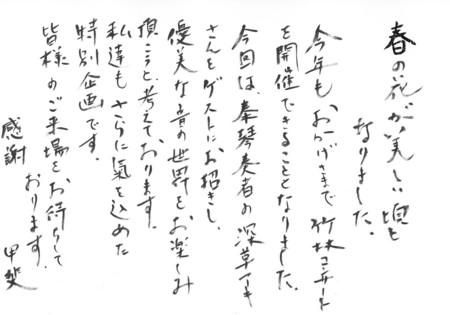 春の花が美しい頃と
なりました。
今年も おかげさまで 竹林コンサート
を開催できることとなりました。
今回は、秦琴奏者の 深草アキ
さんをゲストにお招きし、
優美な音の世界をお楽しみ
頂こうと考えております。
私達も さらに氣を込めた
特別企画です。
皆様のご来場をお待ちして
おります。
感謝 甲斐